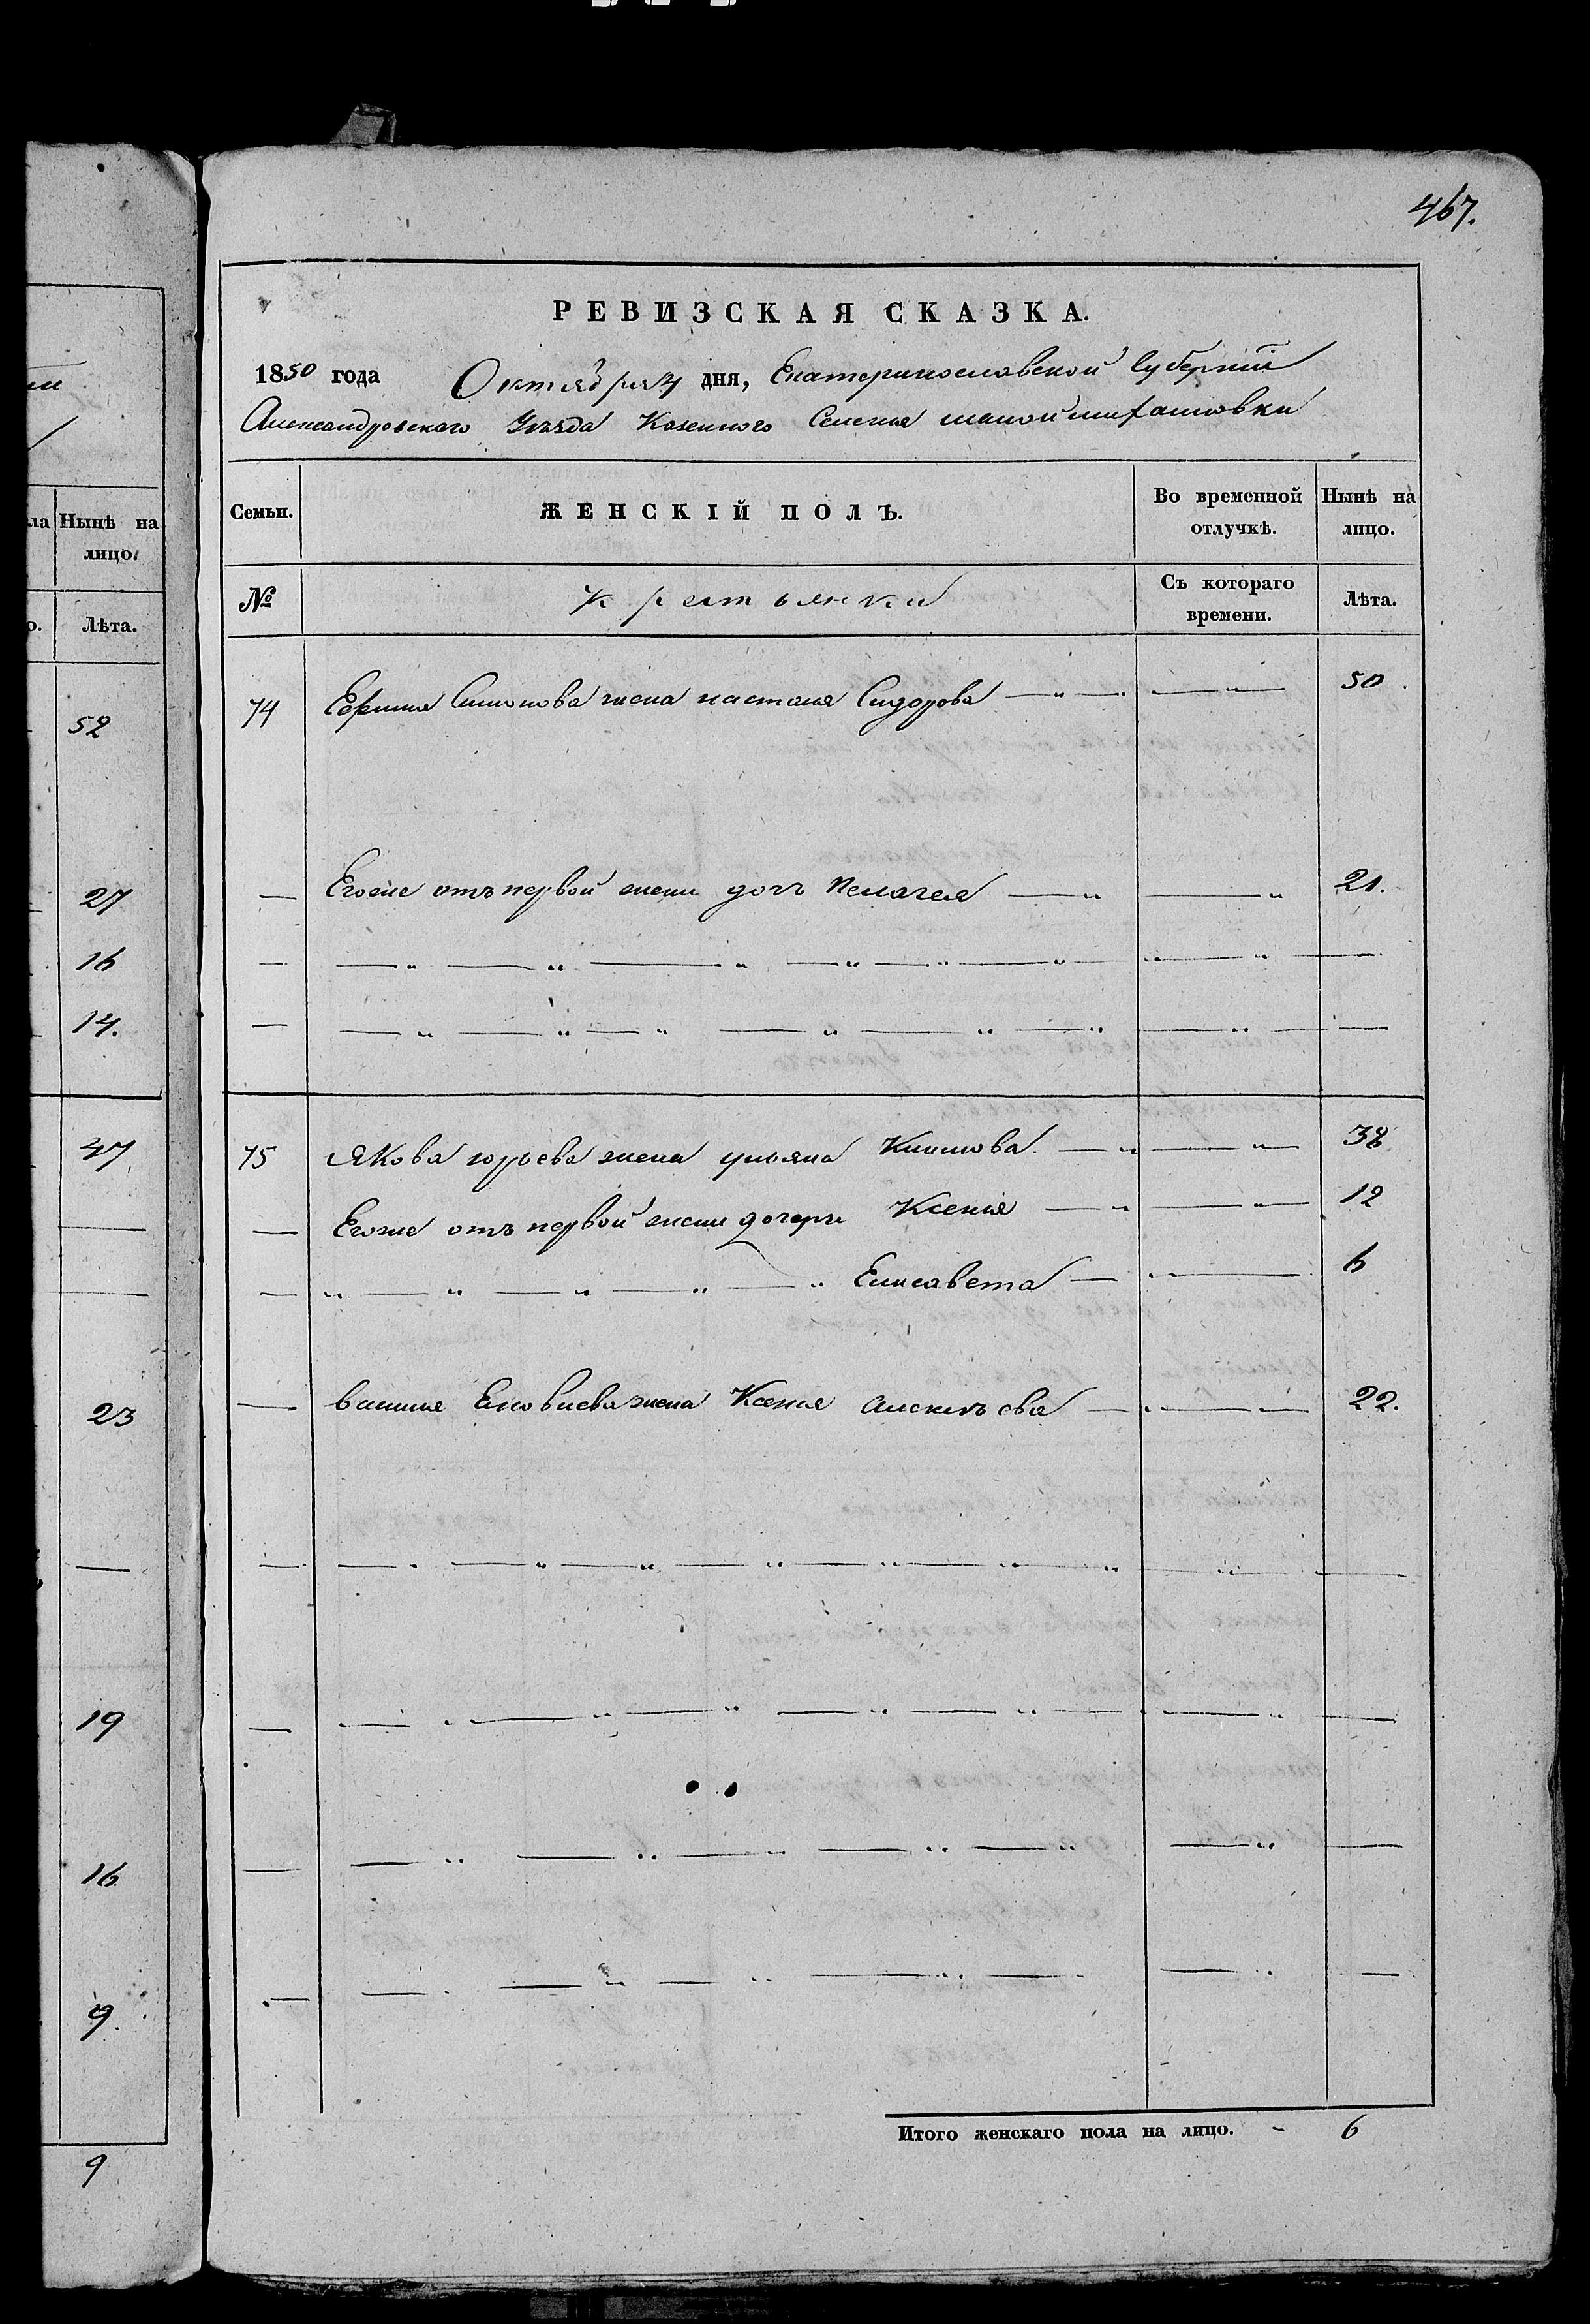 467.
РЕВИЗСКАЯ СКАЗКА.
1850 года Октября 4 дня, Екатеринославской Губерніи
Александровскаго Уѣзда Казеннаго Селенія малой
Семьи. ЖЕНСКІЙ ПОЛЪ. Во временной отлучкѣ. Нынѣ на лицо.
№ Крестьянки Съ котораго времени. Лѣта.
74 Симонова жена Сидорова — „ — — „ — 50
— Егоже отъ первой жены дочь Пелагея — „ — „ 21.
75 Якова юрьева жена ульяна Климова — „ — „ — 38
— Егоже отъ первой жены дочери Ксенія — „ — „ — 12
— „ — „ — „ — „ — „ Елисавета — „ — 6
— жена Ксенія — „ — 22.
Итого женскаго пола на лицо. - 6
ла Нынѣ на лицо.
Лѣта.
52
27
16
14.
47
23
19
16
9
9